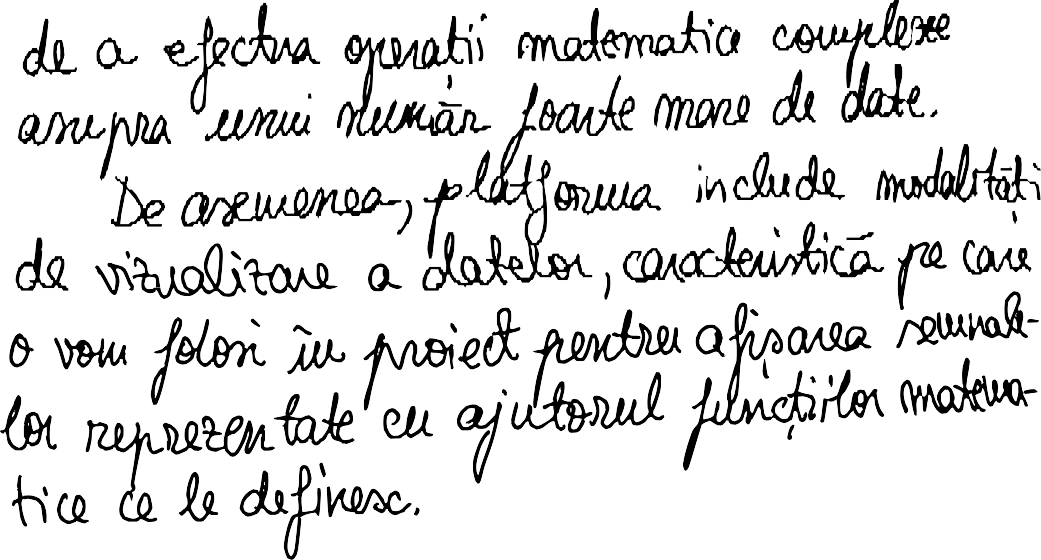 de a efectua operații matematice complexe
asupra unui număr foarte mare de date.
De asemenea, platforma include modalități
de vizualizare a datelor, caracteristică pe care
o vom folosi în proiect pentru afișarea semnale-
lor reprezentate cu ajutorul funcțiilor matema-
tice ce le definesc.